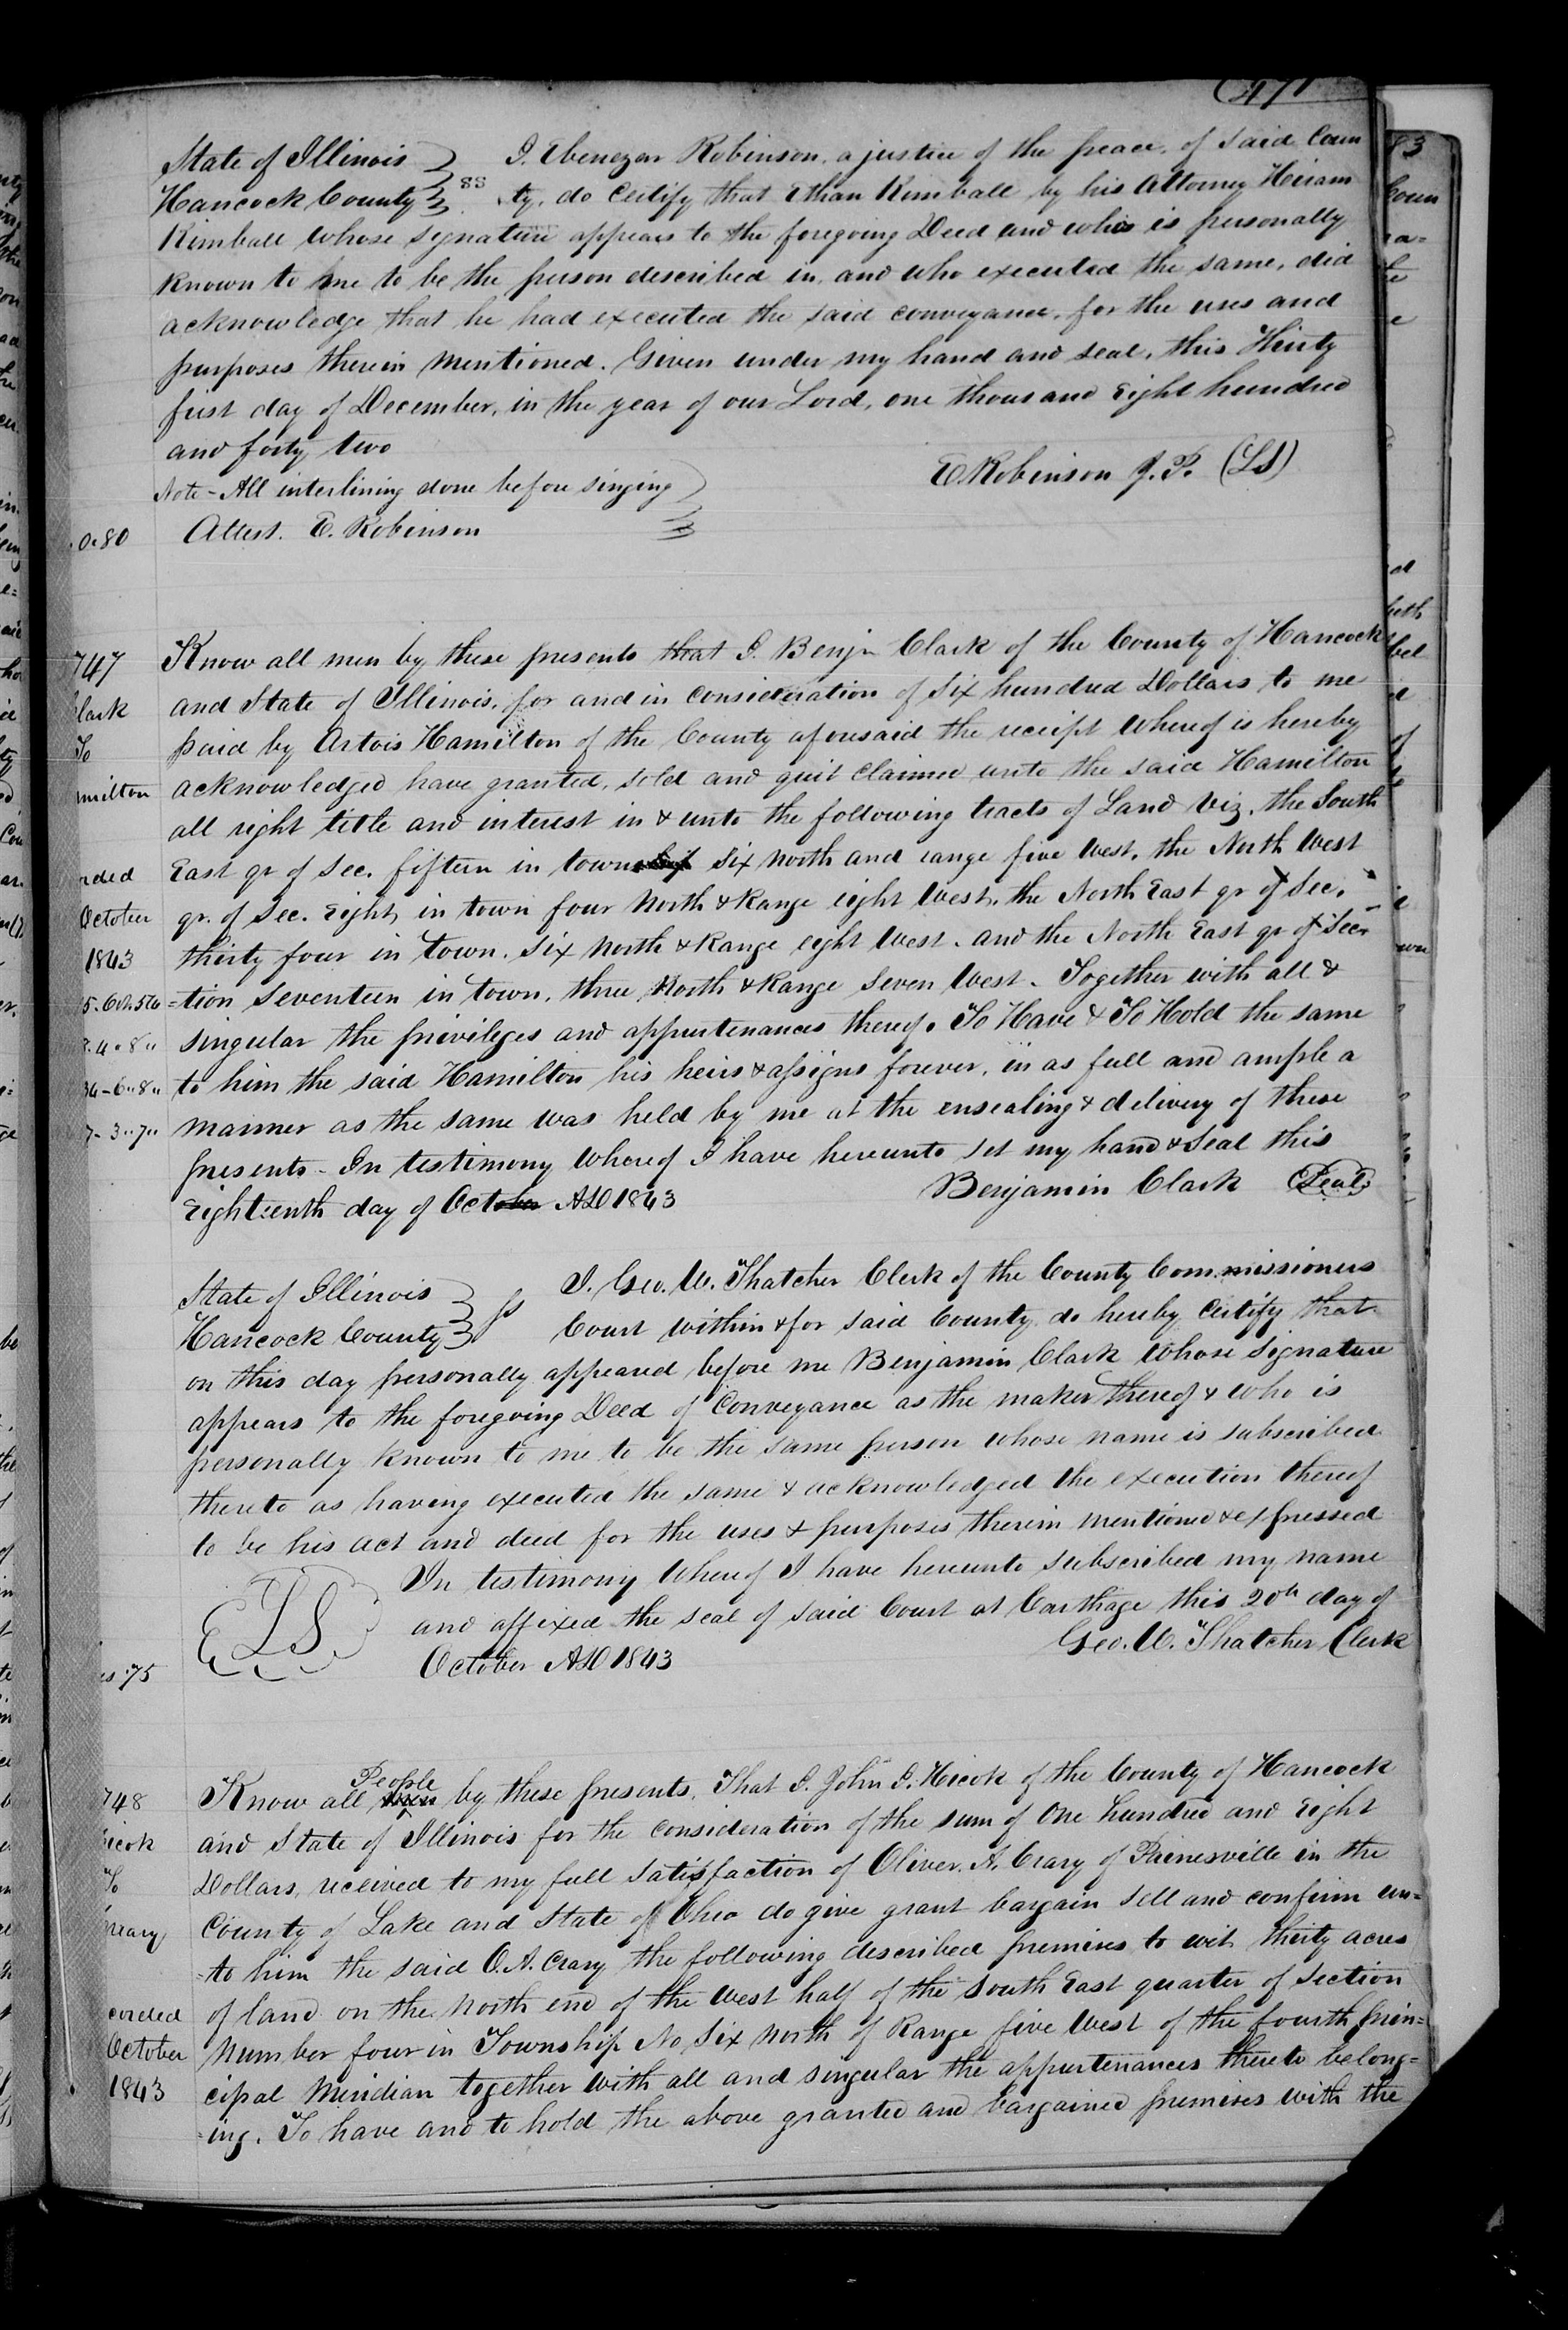 471
State of Illinois } I. Ebenezer Robinson, a justice of the peace, of said Coun
Hancock County } SS. ty, do Certify that Ethan Kimball by his Attorney Hiram
Kimball whose signature appears to the foregoing Deed and who is personally
known to me to be the person described in, and who executed the same, did
acknowledge that he had executed the said conveyance, for the uses and
purposes therein mentioned. Given under my hand and seal, this Thirty
first day of December, in the year of our Lord, one thousand Eight hundred
and forty two
E Robinson J. P. (LS)
Note - All interlining done before singing }
.0.80 Attest. E. Robinson }
747 Know all men by these presents that I. Benjn Clark of the County of Hancock
lark and State of Illinois, for and in consideration of Six hundred Dollars to me
To paid by Artois Hamilton of the County aforesaid the receipt whereof is hereby
milton acknowledged have granted, sold and quit claimed unto the said Hamilton
all right title and interest in & unto the following tracts of Land viz, the South
rded East qr of Sec. fifteen in town Six North and range five West, the North West
October qr. of Sec. Eight, in town four North & Range eight West, the North East qr of Sec.
1843 thirty four in town. Six North & Range eight West. and the North East qr of Sec-
=tion Seventeen in town, three North & Range Seven West - Together with all &
8.4.8.. singular the privileges and appurtenances thereof. To Have & To Hold the same
34-6..8.. to him the said Hamilton his heirs & assigns forever, in as full and ample a
7-3..7.. manner as the same was held by me at the ensealing & delivery of these
presents - In testimony whereof I have hereunto set my hand & Seal this
Eighteenth day of October AD 1843 Benjamin Clark (Seal)
State of Illinois } ss I, Geo. W. Thatcher Clerk of the County Commissioners
Hancock County } Court within & for said County do hereby Certify that
on this day personally appeared before me Benjamin Clark whose signature
appears to the foregoing Deed of Conveyance as the maker thereof & who is
personally known to me to be the same person whose name is subscribed
thereto as having executed the same & acknowledged the execution thereof
to be his act and deed for the uses & purposes therein mentioned & expressed
In testimony whereof I have hereunto subscribed my name
LS and affixed the seal of said Court at Carthage this 20th day of
October AD 1843 Geo. W. Thatcher Clerk
es 75
People
748 Know all men by these presents, That I. John I. Hicok of the County of Hancock
icok and State of Illinois for the consideration of the sum of One hundred and Eight
To Dollars, received to my full satisfaction of Oliver. A. Crary of Painesville in the
County of Lake and State of Ohio do give grant bargain sell and confirm un=
-to him the said O. A. Crary the following described premises to wit thirty acres
corded of land on the North end of the West half of the South East quarter of Section
October Number four in Township No Six North of Range five West of the fourth prin=
1843 cipal Meridian together with all and singular the appurtenances thereto belong=
-ing. To have and to hold the above granted and bargained premises with the